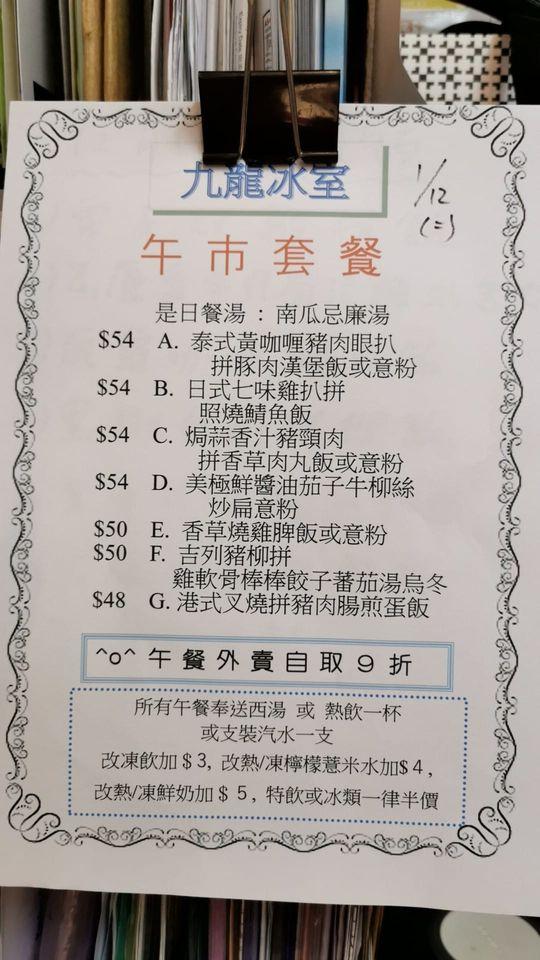 九龍冰室
1/12
(二)
午市套餐
是日餐湯 : 南瓜忌廉湯
$54 A. 泰式黃咖喱豬肉眼扒
拼豚肉漢堡飯或意粉
$54 B. 日式七味雞扒拼
照燒鯖魚飯
$54 C. 焗蒜香汁豬頸肉
拼香草肉丸飯或意粉
$54 D. 美極鮮醬油茄子牛柳絲
炒扁意粉
$50 E. 香草燒雞脾飯或意粉
$50 F. 吉列豬柳拼
雞軟骨棒棒餃子蕃茄湯烏冬
$48 G. 港式叉燒拼豬肉腸煎蛋飯
^o^ 午餐外賣自取9折
所有午餐奉送西湯 或 熱飲一杯
或支裝汽水一支
改凍飲加 $3, 改熱/凍檸檬薏米水加$4,
改熱/凍鮮奶加 $ 5, 特飲或冰類一律半價